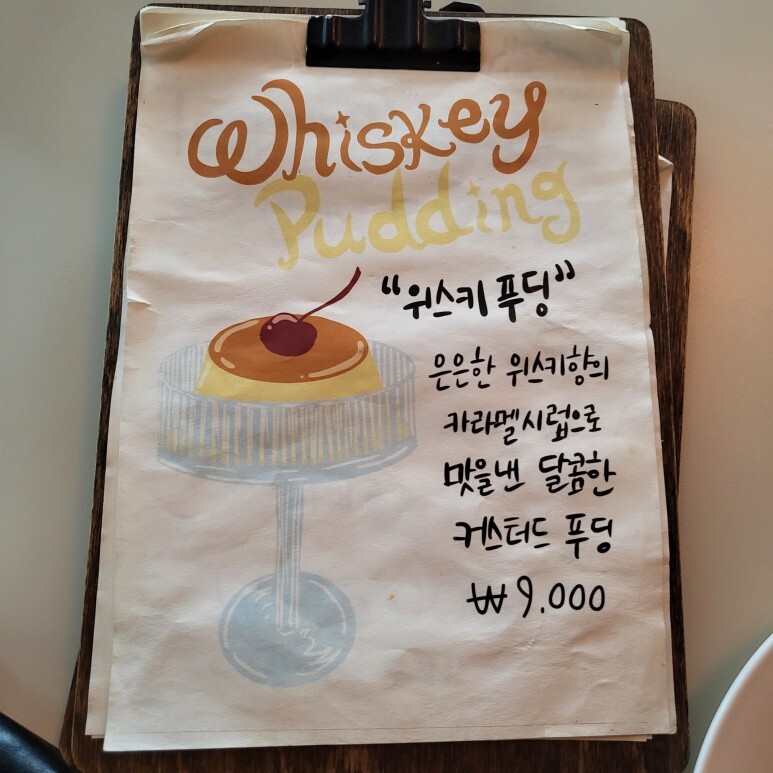 Whiskey
Pudding
“위스키 푸딩”
은은한 위스키향의
카라멜시럽으로
맛을낸 달콤한
커스터드 푸딩
₩9.000